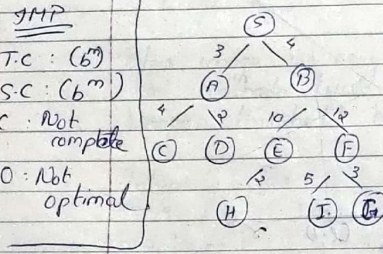 IMP
T.C : (b^m)
S.C : (b^m)
C : Not
complete
O : Not
optimal
S
3 4
A B
4 2 10 12
C D E F
2 5 3
H I G